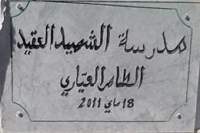 مدرسة الشهيد العقيد
الطاهر العياري
18 ماي 2011